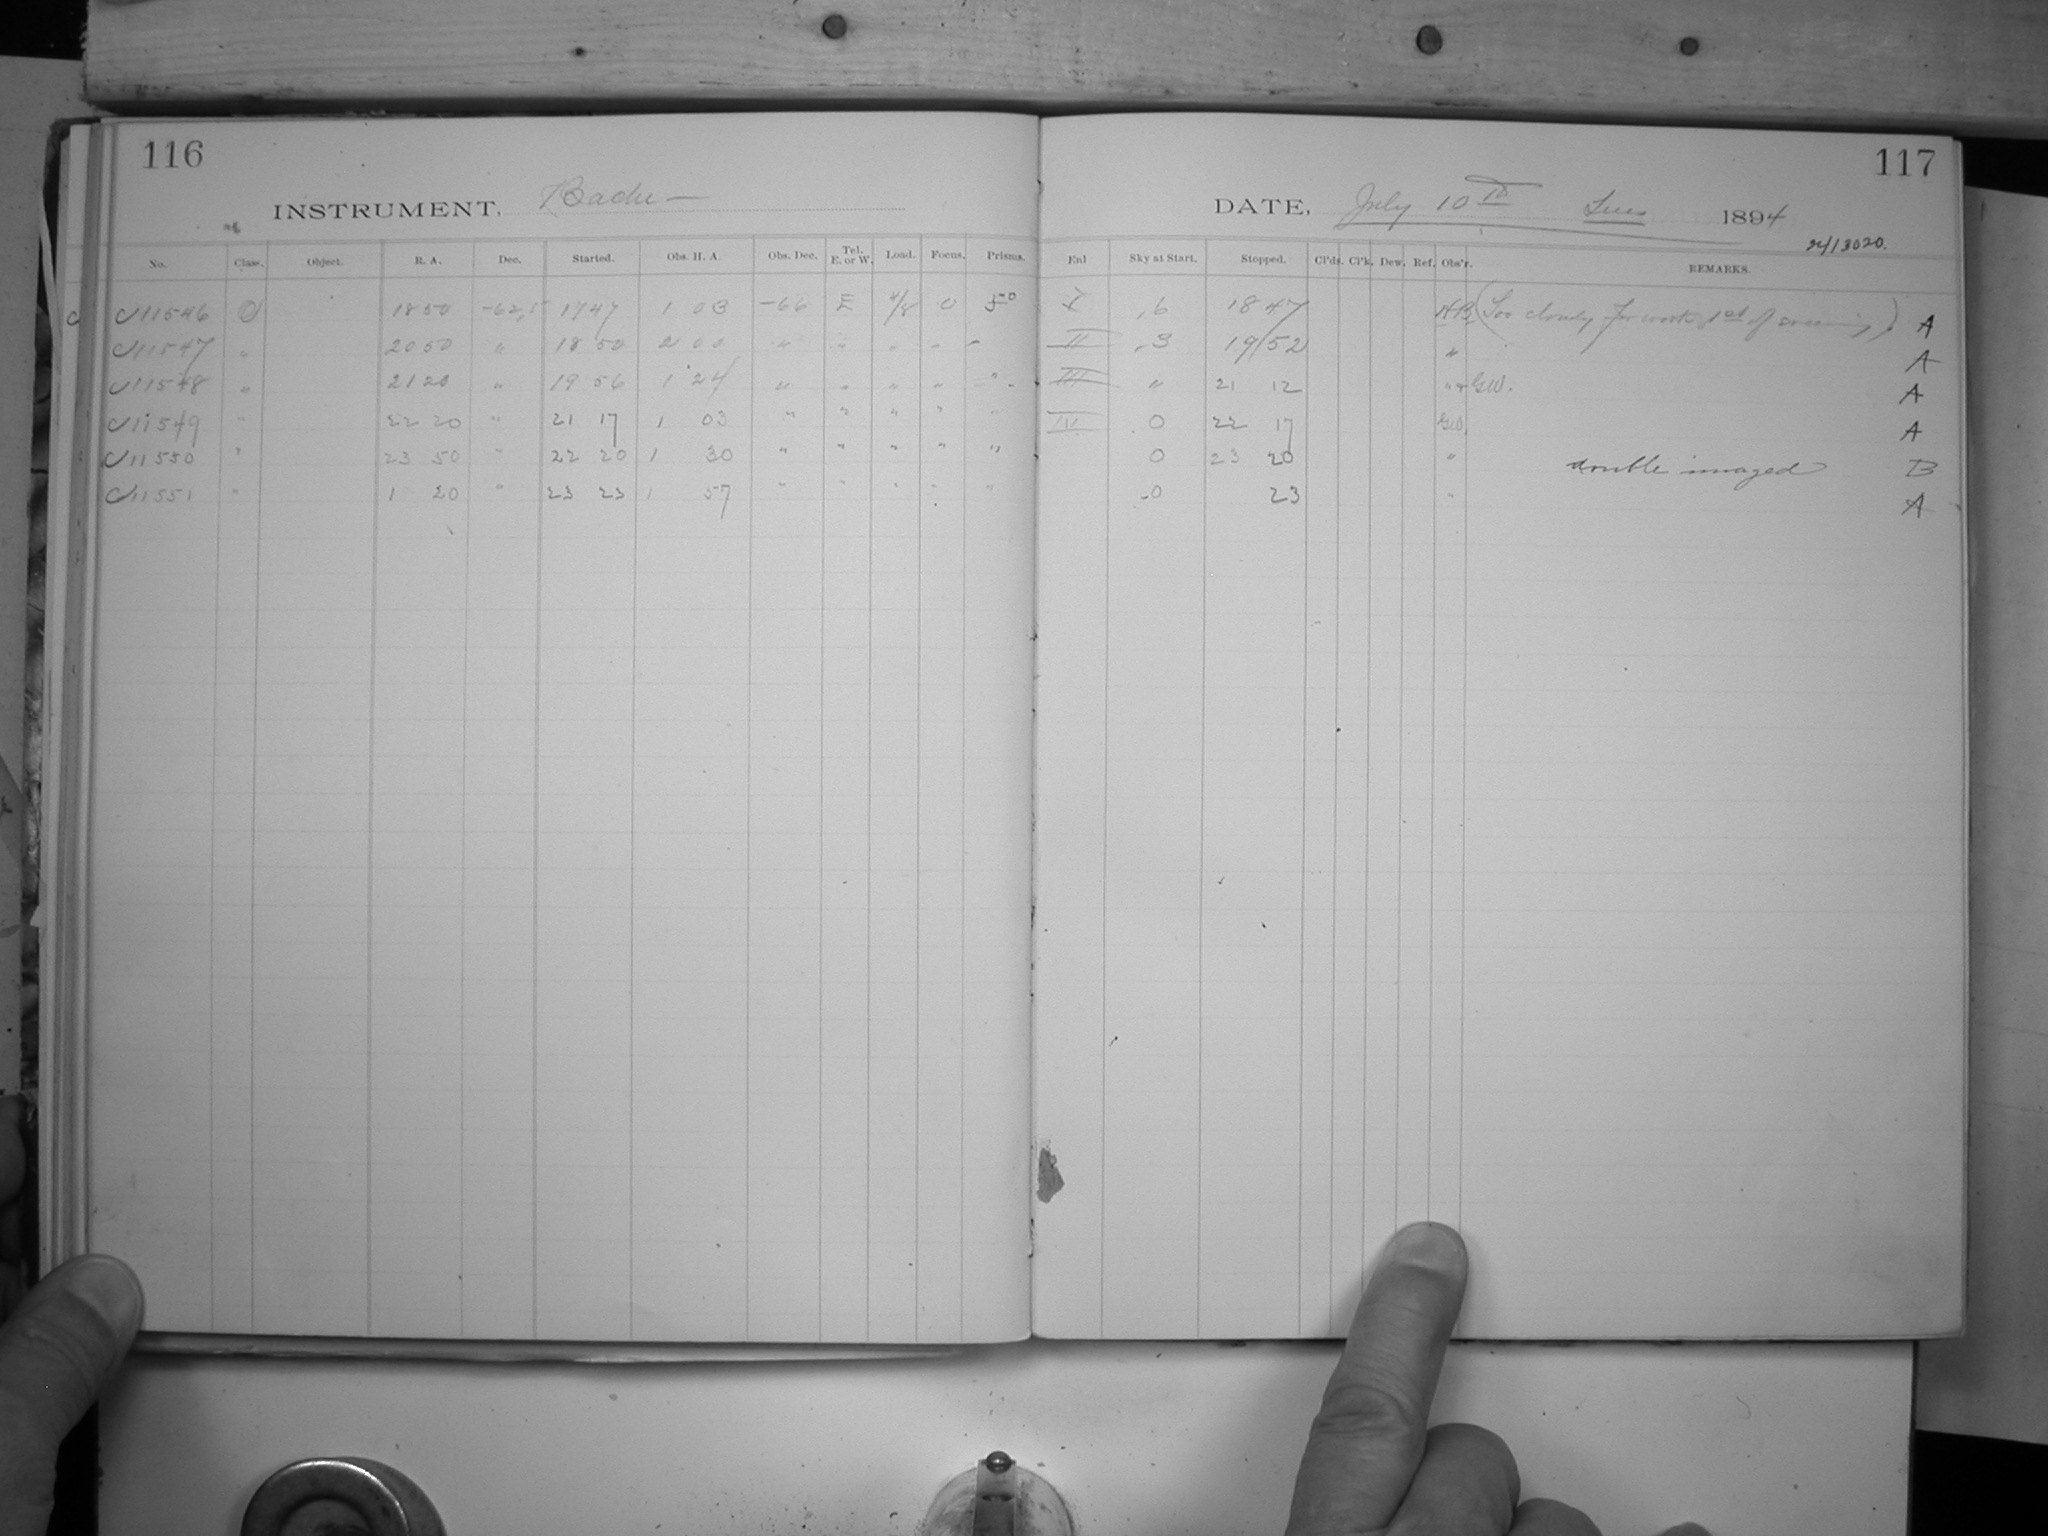 116
INSTRUMENT, Bache
No. Class. Object. R. A. Dec. Started. Obs. H. A. Obs. Dec. Tel. E. or W. Load. Focus. Prisms.
11546 O 18 50 -62,5 17 47 1 03 -66 E 4/8 0 50
11547 " 20 50 " 18 50 2 00 " " " " "
11548 " 21 20 " 19 56 1 24 " " " " "
11549 " 22 20 " 21 17 1 03 " " " " "
11550 " 23 50 " 22 20 1 30 " " " " "
11551 " 1 20 " 23 23 1 57 " " " " "
117
DATE, July 10th Tues 1894
24/13020.
Enl Sky at Start. Stopped. Cl'ds. Cl'k. Dew. Ref. Obs'r. REMARKS.
I .6 18 47 (Too cloudy for work 1st of evening) A
II .3 19 52 " A
III " 21 12 " + GW. A
IV 0 22 17 GW. A
0 23 20 " double imaged B
0 23 " A